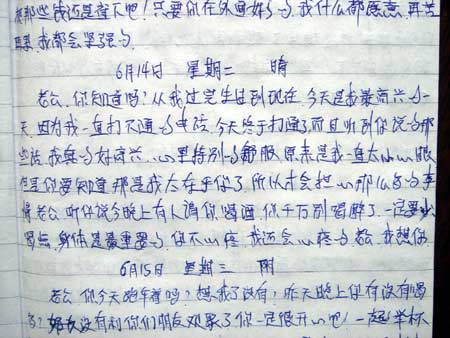 那些我还是留下吧！只要你在外面好的，我什么都愿意，再苦
再累，我都会坚强的。
6月14日 星期二 晴
老公，你知道吗？从我过完生日到现在，今天是我最高兴的一
天，因为我一直打不通的电话，今天终于打通了，而且听到你说的那
些话，我真的好高兴，心里特别的舒服，原来是我一直太小心眼
但是你要知道，那是我太在乎你了，所以才会担心那么多的事
情，老公，听你说今晚上有人请你喝酒，你千万别喝醉了，一定要少
喝点，身体是最重要的，你不心疼，我还会心疼的，老公，我想你
6月15日 星期三 阴
老公，你今天跑车着吗？想我了没有？昨天晚上你有没有喝
多？没有和你们朋友观 你一定很开心吧！一起举杯